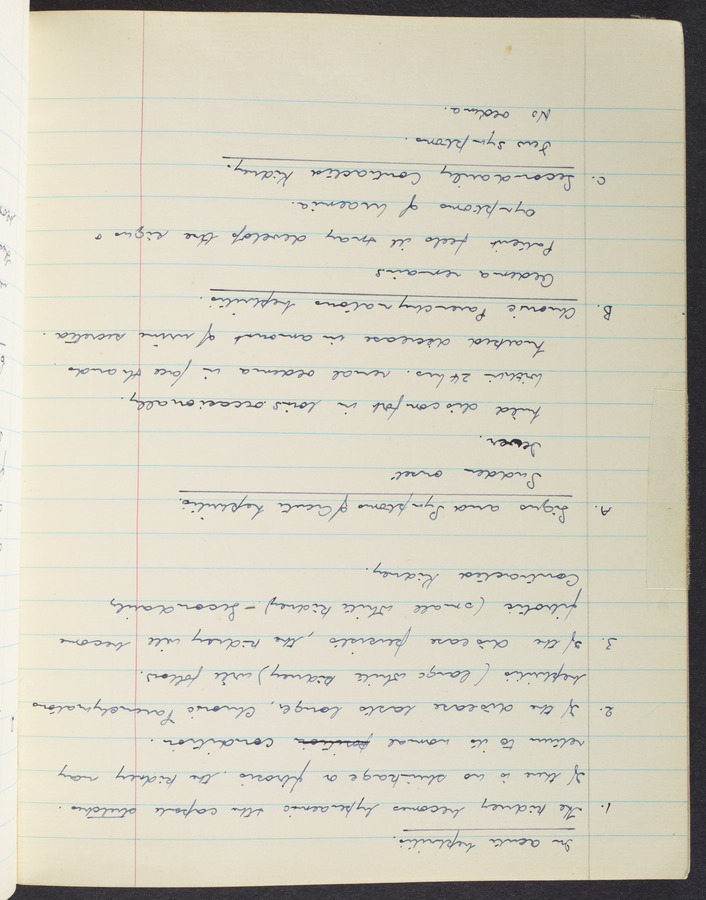 In acute nephritis.
1. The kidney becomes hyperaemic & the capsule stretches.
If there is no shrinkage or fibrosis, the kidney may
return to its normal position condition.
2. If the disease lasts longer, Chronic Parenchymatous
nephritis (large white kidney) will follow.
3. If the disease persists, the kidney will become
fibrotic (small white kidney) - Secondarily
Contracted Kidney.
A. Signs and Symptoms of Acute nephritis.
Sudden onset
Fever.
Mild discomfort in loins occasionally.
Within 24 hrs. renal oedema in face & hands.
Marked decrease in amount of urine secreted.
B. Chronic Parenchymatous nephritis.
Oedema remains
Patient feels ill & may develop the signs &
symptoms of Uraemia.
C. Secondarily Contracted Kidney.
Few symptoms.
No oedema.